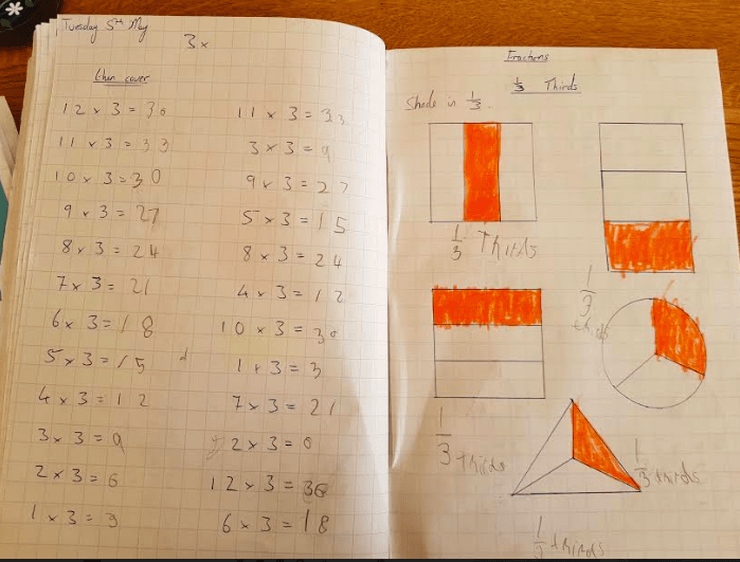 Tuesday 5th May
3x
cover
12 x 3 = 36
11 x 3 = 33
10 x 3 = 30
9 x 3 = 27
8 x 3 = 24
7 x 3 = 21
6 x 3 = 18
5 x 3 = 15
4 x 3 = 12
3 x 3 = 9
2 x 3 = 6
1 x 3 = 3
11 x 3 = 33
3 x 3 = 9
9 x 3 = 27
5 x 3 = 15
8 x 3 = 24
4 x 3 = 12
10 x 3 = 30
1 x 3 = 3
7 x 3 = 21
2 x 3 = 6
12 x 3 = 36
6 x 3 = 18
Fractions
1/3 Thirds
Shade in 1/3.
1/3 Thirds
1/3
1/3 thirds
1/3 thirds
1/3 thirds